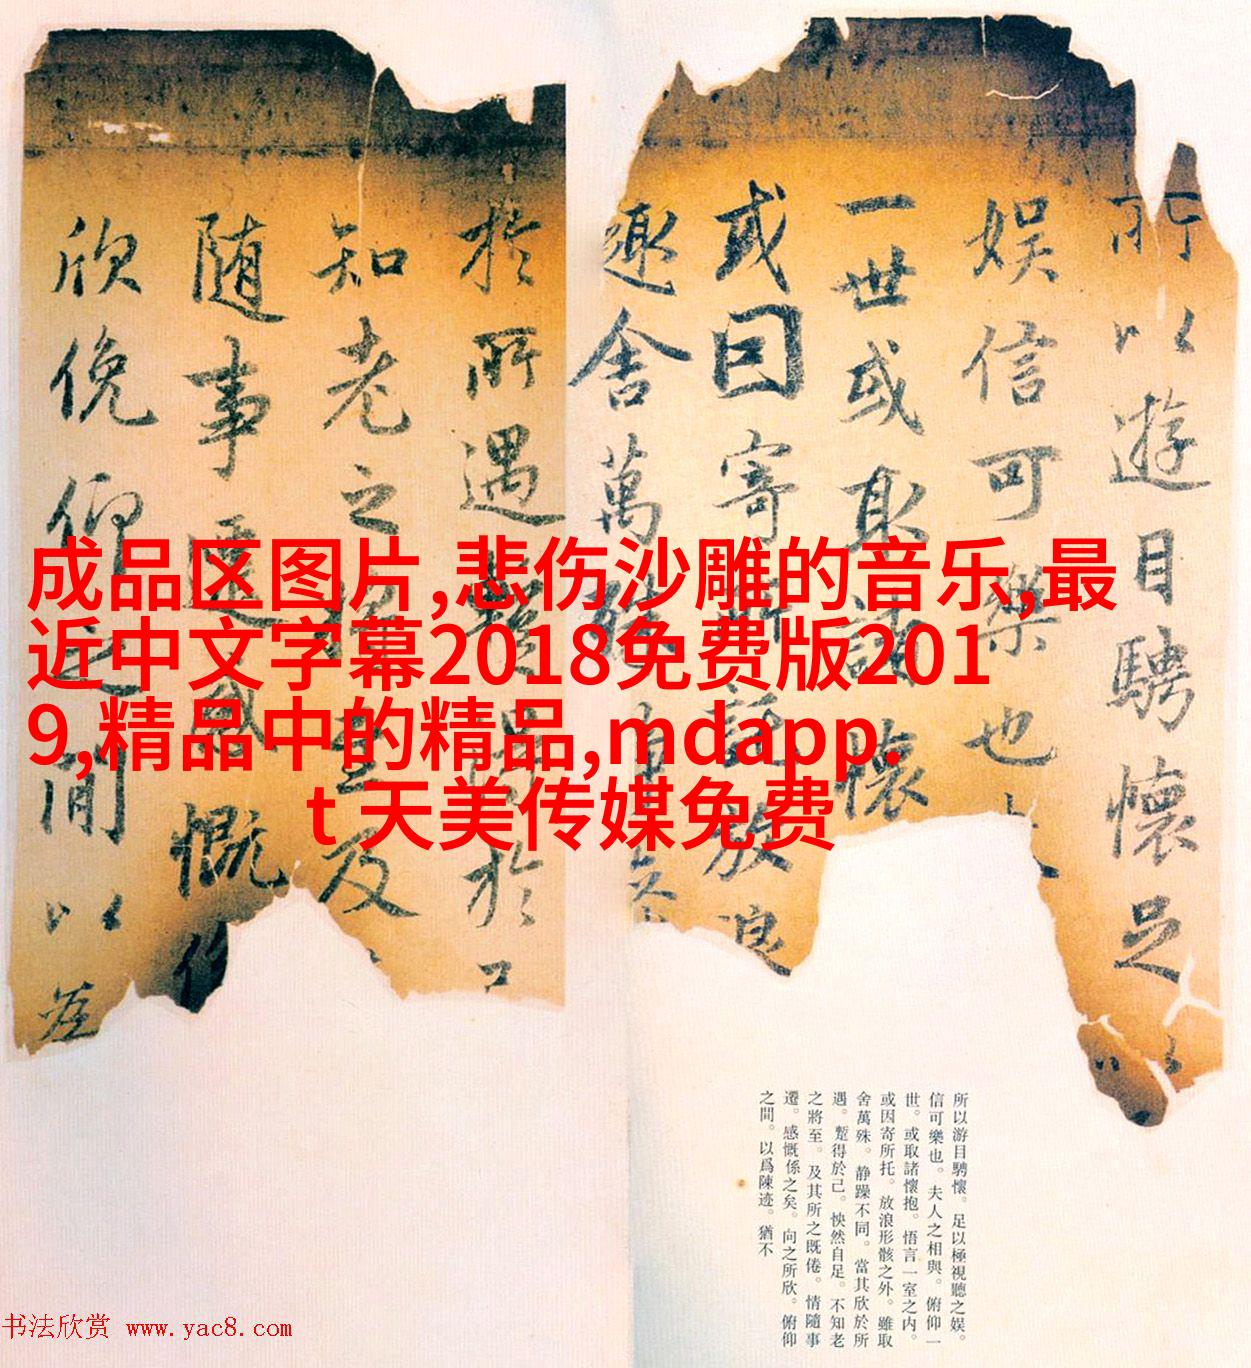 所以遊目騁懷足
娱信可樂也
一世或取諸懷
或因寄所託放浪
趣舍萬殊
於所遇
知老之將至及
随事遷感慨係
欣俛仰之間以為
成品区图片,悲伤沙雕的音乐,最
近中文字幕2018免费版201
9,精品中的精品,mdapp.
t 天美传媒免费
所以游目騁懷。足以極視聽之娱。
信可樂也。夫人之相與。俯仰一
世。或取諸懷抱。悟言一室之内。
或因寄所托。放浪形骸之外。雖取
舍萬殊。静躁不同。當其欣於所
遇。蹔得於己。怏然自足。不知老
之將至。及其所之既倦。情隨事
遷。感慨係之矣。向之所欣。俯仰
之間。以爲陳迹。猶不
书法欣赏 www.yac8.com